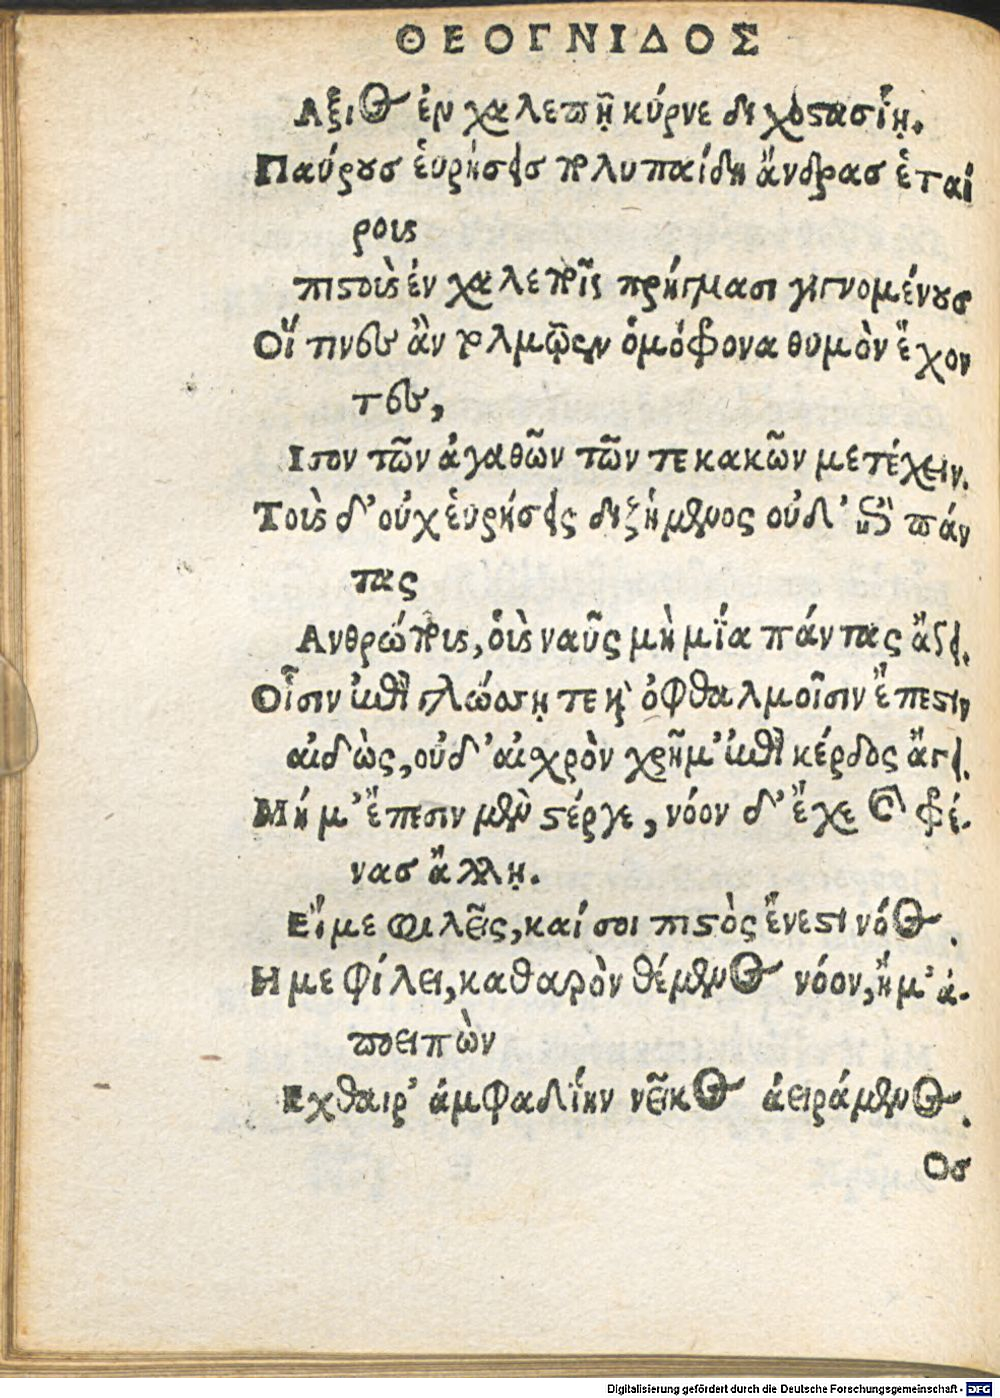 ΘΕΟΓΝΙΔΟΣ
Αξιος ἐν χαλεπῇ κύρνε διχοστασίῃ.
Παύρους εὑρήσεις πολυπαίδη ἄνδρας ἑταί
ρους
πιστοὺς ἐν χαλεποῖς πρήγμασι γιγνομένους
Οἵ τινες ἂν τολμῷεν ὁμόφονα θυμὸν ἔχον
τες,
Ισον τῶν ἀγαθῶν τῶν τε κακῶν μετέχειν.
Τοὺς δ' οὐχ εὑρήσεις διζήμενος οὐδ' ἐπὶ πάν
τας
Ανθρώπους, οὓς ναῦς μὴ μία πάντας ἄγει.
Οἷσιν ἐπὶ γλώσσῃ τε καὶ ὀφθαλμοῖσιν ἔπεστιν
αἰδὼς, οὐδ' αἰχρὸν χρῆμ' ἐπὶ κέρδος ἄγει.
Μή μ' ἔπεσιν μὲν στέργε, νόον δ' ἔχε καὶ φέ-
νας ἄλλῃ.
Εἴ με φιλεῖς, καί σοι πιστὸς ἔνεστι νόος.
Η με φίλει, καθαρὸν θέμενος νόον, ἤ μ' ἀ-
ποειπὼν
Εχθαιρ' ἀμφαδίην νεῖκος ἀειράμενος.
Ος
Digitalisierung gefördert durch die Deutsche Forschungsgemeinschaft - DFG